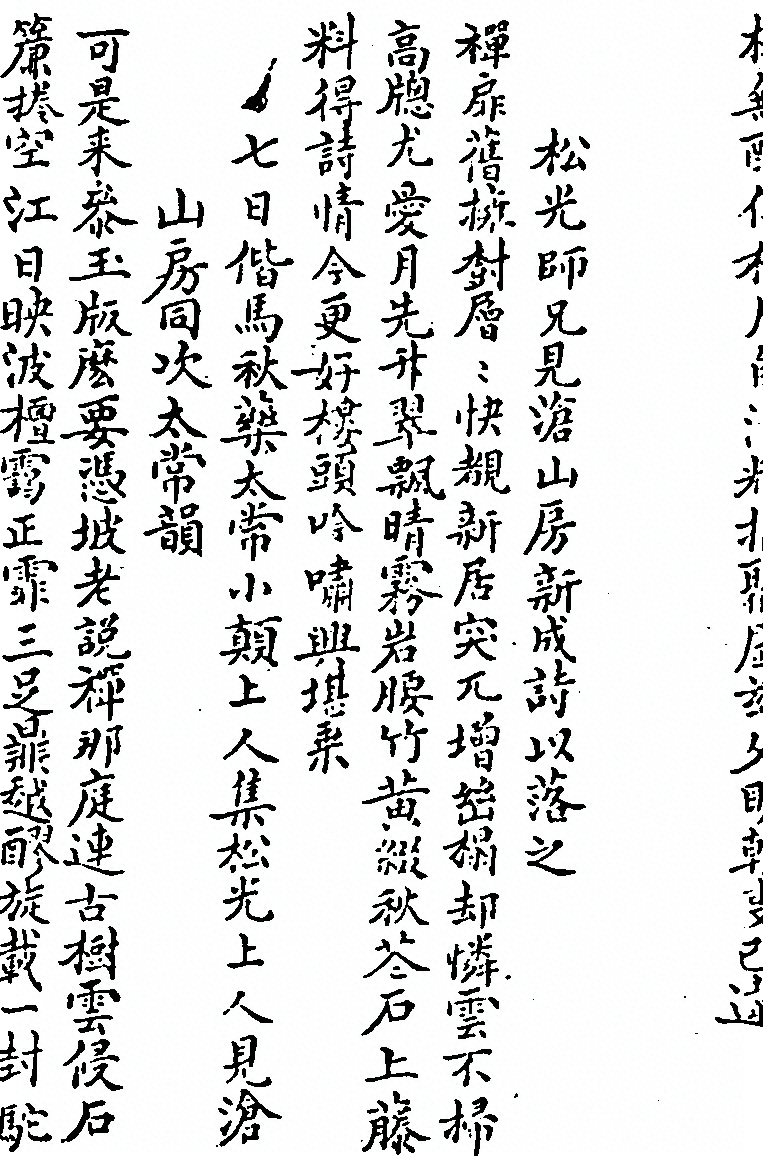 松光師兄見滄山房新成詩以落之
禪扉舊掖樹層〻快覩新居突兀增出榻却憐雲不掃
高牕尤愛月先升翠飄晴霧岩腰竹黄綴秋苓石上藤
料得詩情今更好樓頭吟嘯興堪乗
七日偕馬秋藥太常小顛上人集松光上人見滄
山房同次太常韻
可是来參玉版麽要憑坡老説禪那庭連古樹雲侵石
簾捲空江日映波檀靄正霏三足鼎越醪旋載一封駝